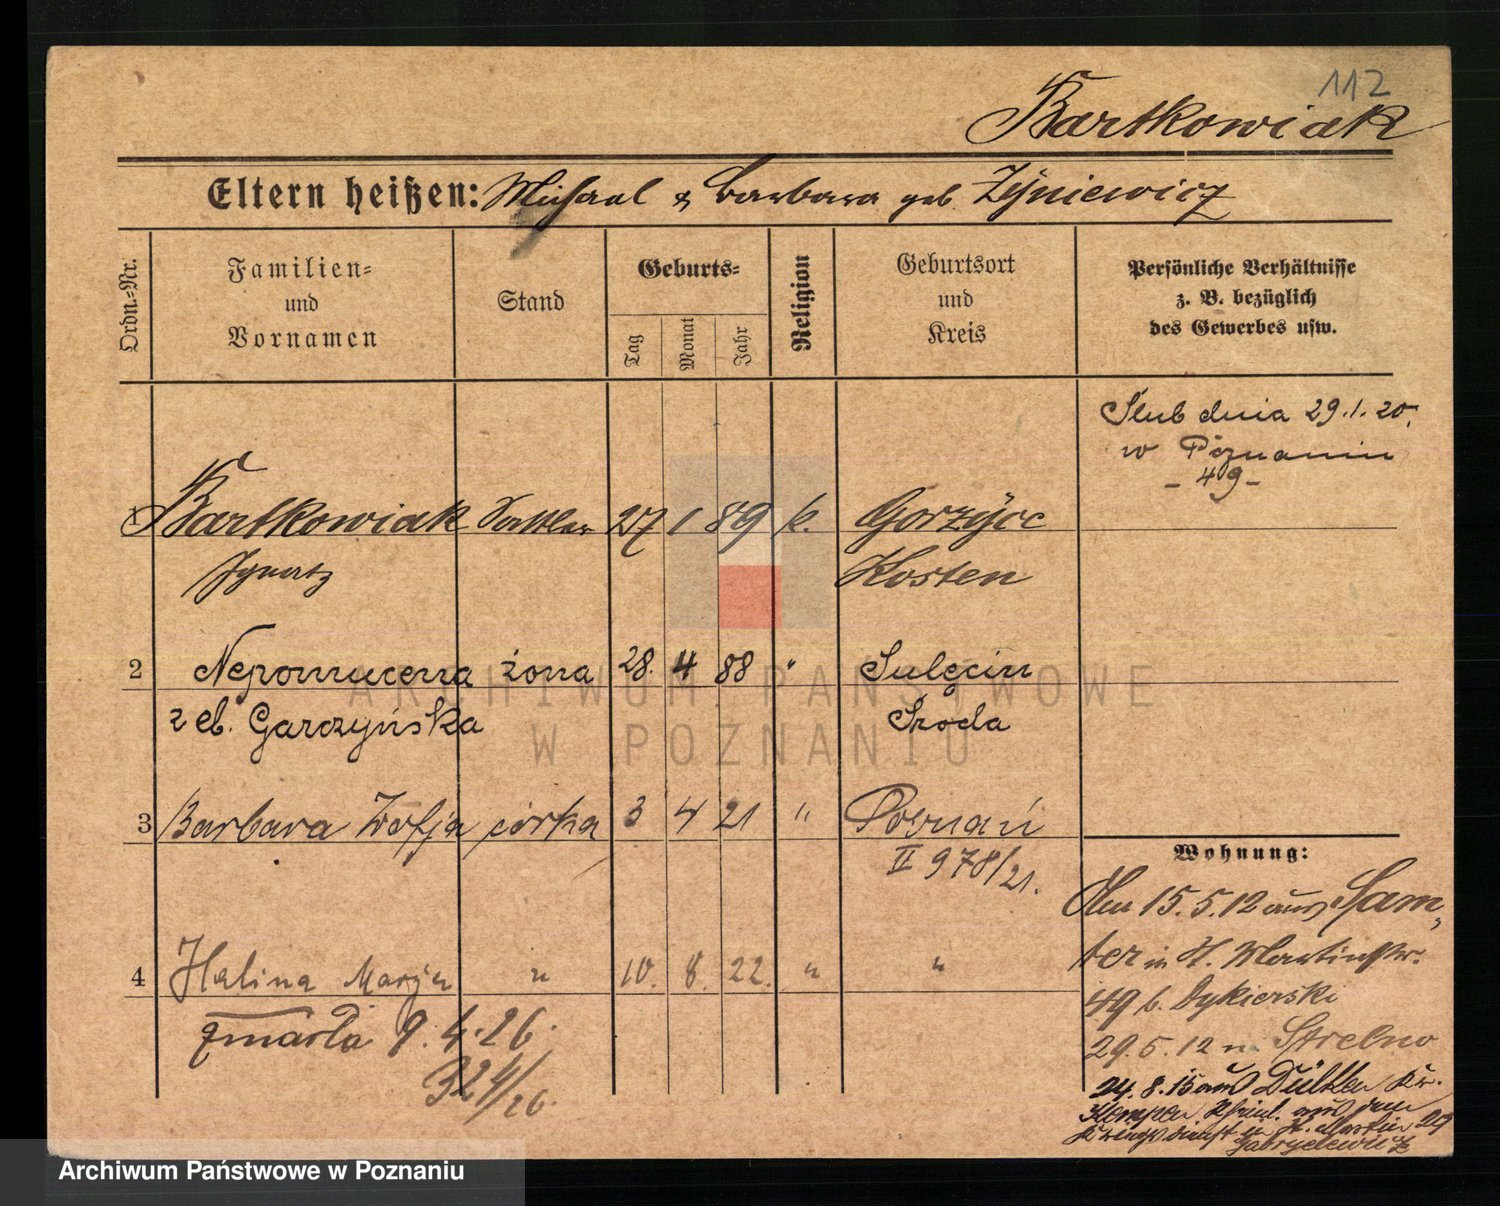 112
Bartkowiak
Eltern heißen: Michael & Barbara geb. Zyniewicz
Ordn.=Nr.
Familien=
und
Vornamen
Stand
Geburts=
Tag
Monat
Jahr
Religion
Geburtsort
und
Kreis
Persönliche Verhältnisse
z. B. bezüglich
des Gewerbes usw.
Ślub dnia 29.1.20.
w Poznaniu
- 49 -
1 Bartkowiak Sattler 27 1 89 k. Gorzyce
Ignatz Kosten
2 Nepomucena żona 28. 4 88 " Sulęcin
z d. Garczyńska Środa
3 Barbara Zofja córka 3 4 21 " Poznań
II 978/21.
4 Halina Marja " 10. 8. 22. " "
zmarła 9.4.26.
324/26.
Wohnung:
Am 15.5.12 aus Sam-
ter in St. Martinstr.
49 b. Dykierski
29.5.12 n. Strelno
24.8.15 aus Dülken Kr.
Kempen Rheinl. aus dem
Kriegsdienst n. St. Martin 29
Gabryelewicz
ARCHIWUM PAŃSTWOWE
W POZNANIU
Archiwum Państwowe w Poznaniu